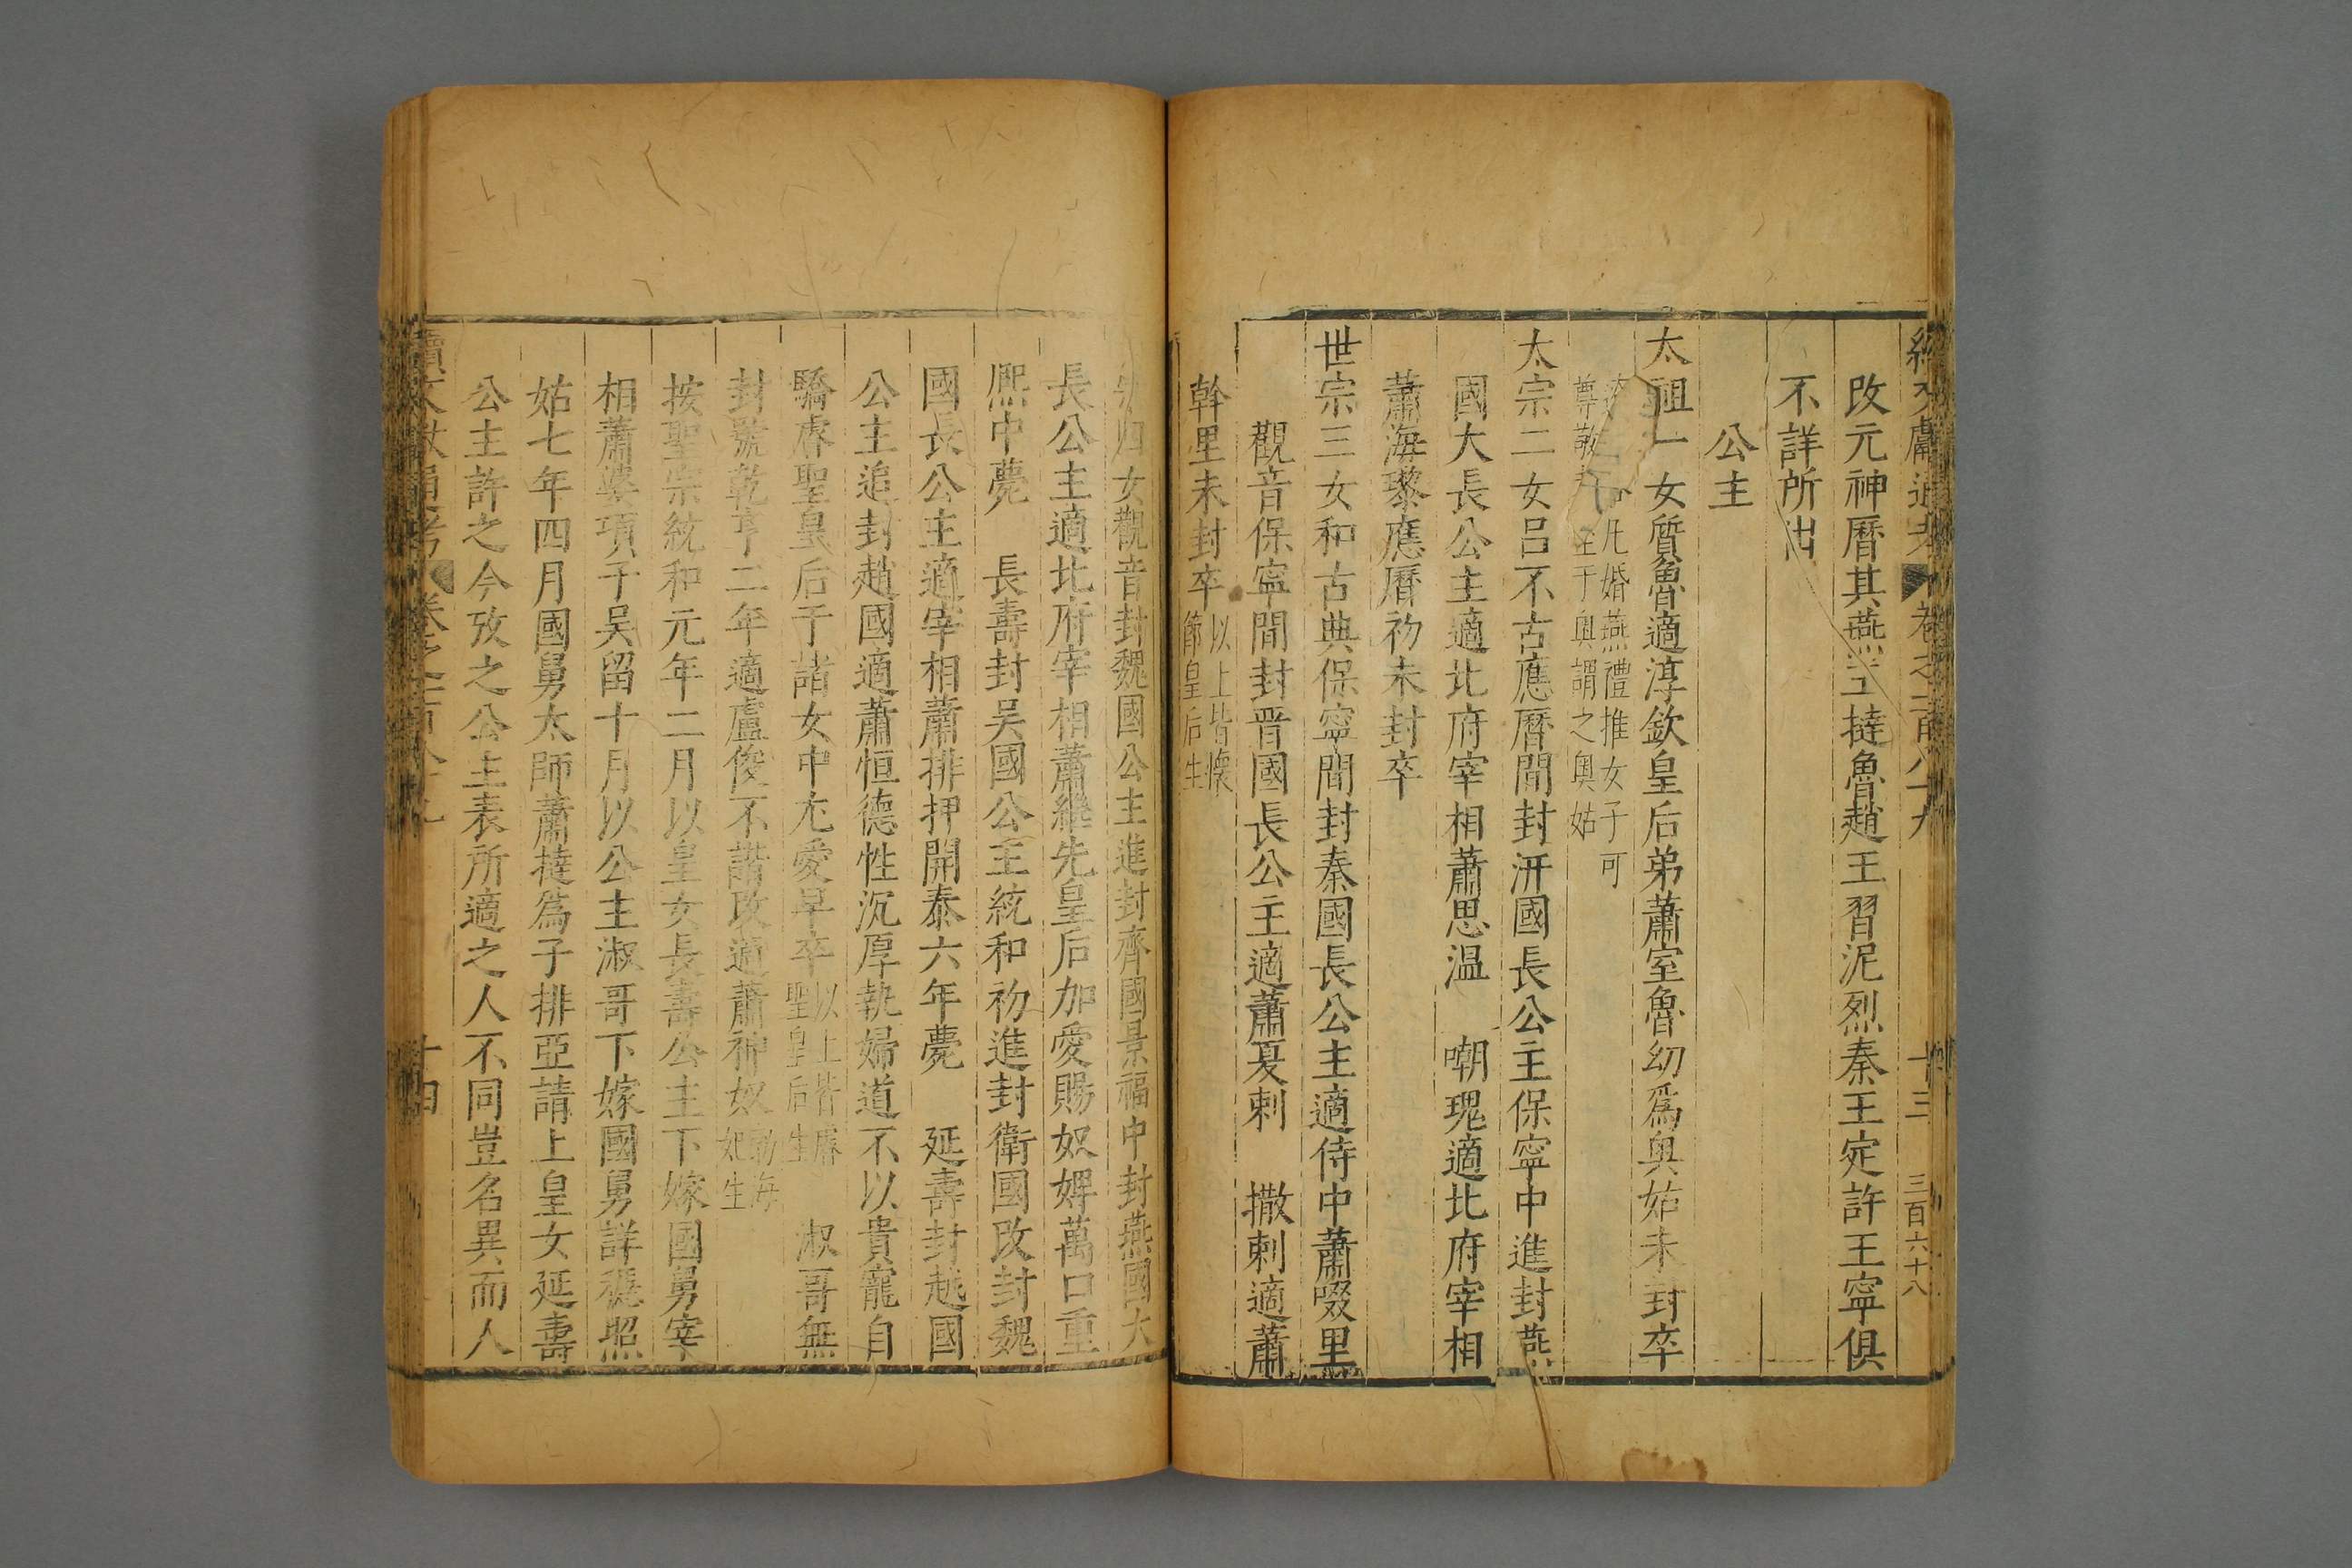 續文獻通考 卷之二百八十九 十三 三百六十八
改元神曆其燕王撻魯趙王習泥烈秦王定許王寧俱
不詳所出
公主
太祖一女質魯適淳欽皇后弟蕭室魯幼爲奥姑未封卒
凡婚燕禮推女子可
尊敬者坐于奥謂之奥姑
太宗二女吕不古應曆間封汧國長公主保寧中進封燕
國大長公主適北府宰相蕭思温 嘲瑰適北府宰相
蕭海瓈應曆初未封卒
世宗三女和古典保寧間封秦國長公主適侍中蕭啜里
觀音保寧間封晋國長公主適蕭夏剌 撒剌適蕭
幹里未封卒 以上皆懷
節皇后生
四女觀音封魏國公主進封齊國景福中封燕國大
長公主適北府宰相蕭繼先皇后加愛賜奴婢萬口重
熈中薨 長壽封吴國公主統和初進封衛國改封魏
國長公主適宰相蕭排押開泰六年薨 延壽封越國
公主追封趙國適蕭恒德性沉厚執婦道不以貴寵自
驕睿聖皇后于諸女中尤愛早卒 以上皆睿
聖皇后生 淑哥無
封號乾亨二年適盧俊不諧改適蕭神奴 渤海
妃生
按聖宗統和元年二月以皇女長壽公主下嫁國舅宰
相蕭婆項子吴留十月以公主淑哥下嫁國舅詳穏照
姑七年四月國舅太師蕭撻爲子排亞請上皇女延壽
公主許之今攷之公主表所適之人不同豈名異而人
續文獻通考 十四